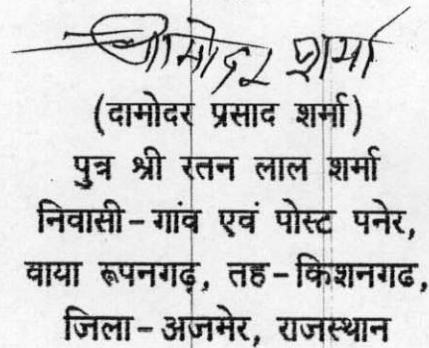 दामोदर शर्मा
(दामोदर प्रसाद शर्मा)
पुत्र श्री रतन लाल शर्मा
निवासी-गांव एवं पोस्ट पनेर,
वाया रूपनगढ़, तह-किशनगढ,
जिला-अजमेर, राजस्थान